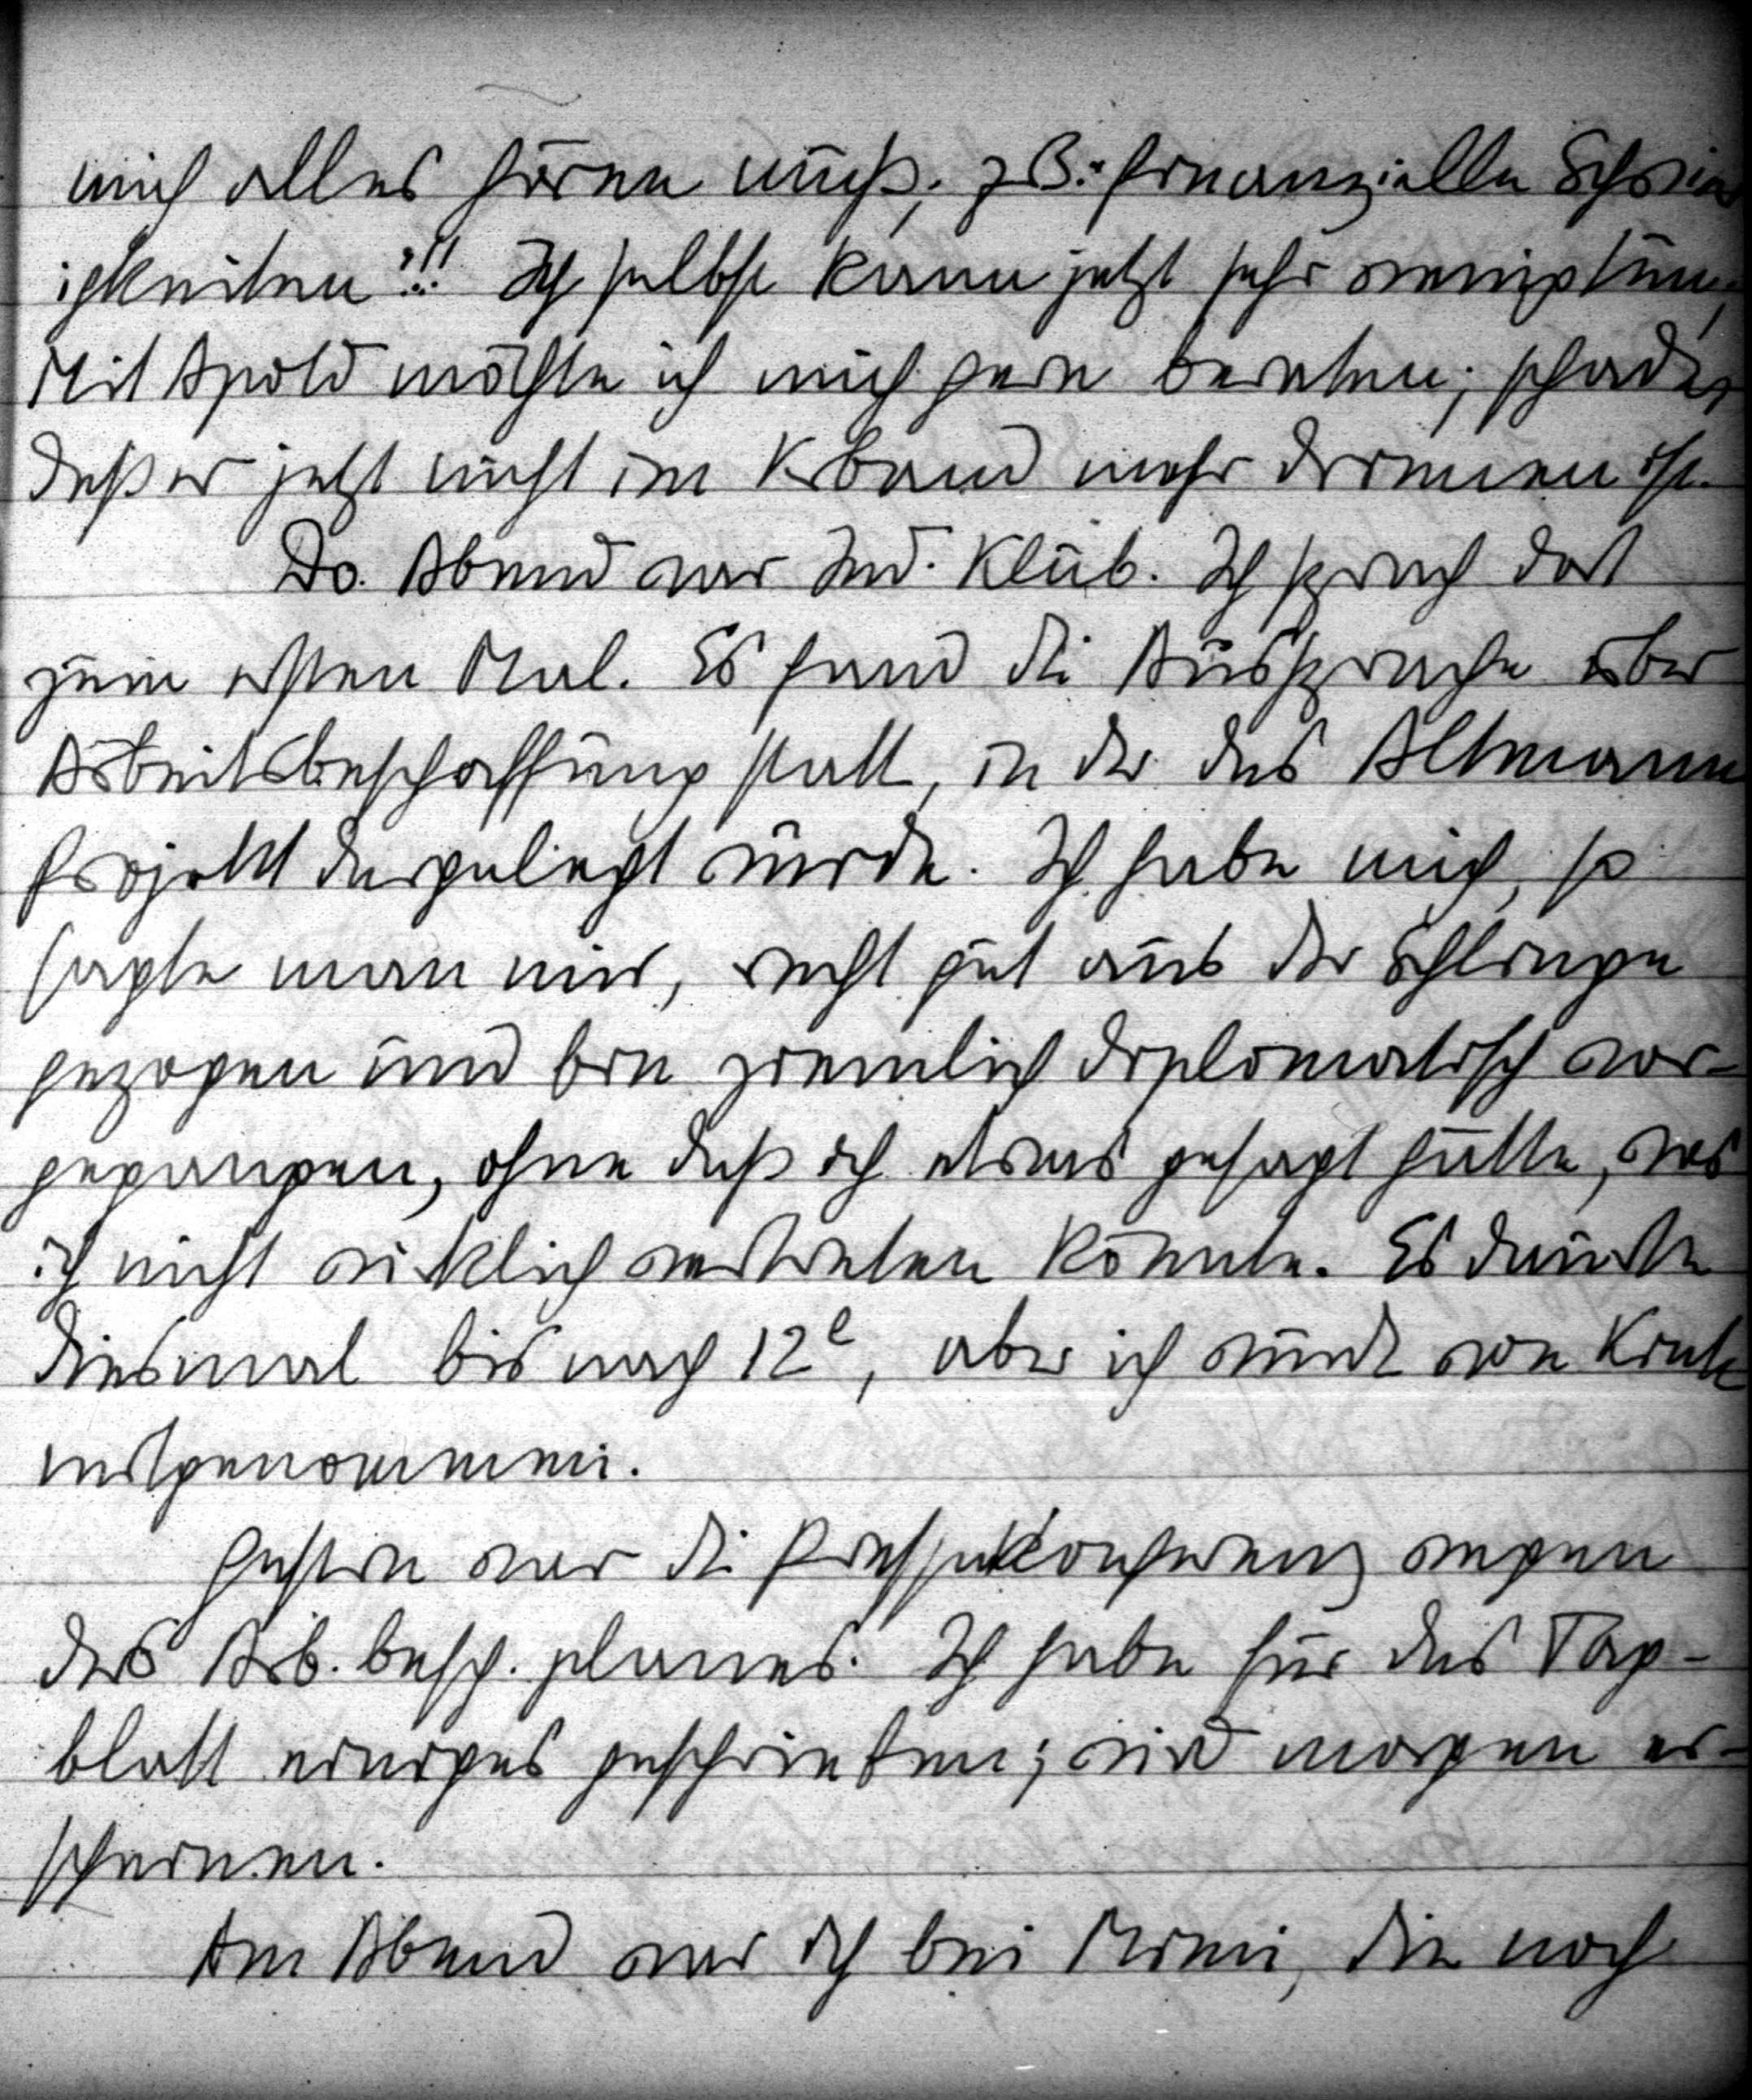 mich alles hören muß, z.B. finanzielle Schwier
igkeiten!!! Ich selbst kann jetzt sehr wenig tun,
Mit Apold möchte ich mich gern beraten; schade,
daß er jetzt nicht im Verband mehr drinnen ist.
Do. Abend war Ind. Klub. Ich sprach dort
zum ersten Mal. Es fand die Aussprache über
Arbeitsbeschaffung statt, in der das Altmann
Projekt dargelegt wurde. Ich habe mich, so
sagte man mir, recht gut aus der Schlinge
gezogen und bin ziemlich diplomatisch vor-
gegangen, ohne daß ich etwas gesagt hätte, was
ich nicht wirklich vertreten könnte. Es dauerte
diesmal bis nach 12h, aber ich wurde von
mitgenommen.
Gestern war die Pressekonferenz wegen
des Arb.besch.planes. Ich habe für das Tag-
blatt einiges geschrieben; wird morgen er-
scheinen.
Am Abend war ich bei Mimi, die noch